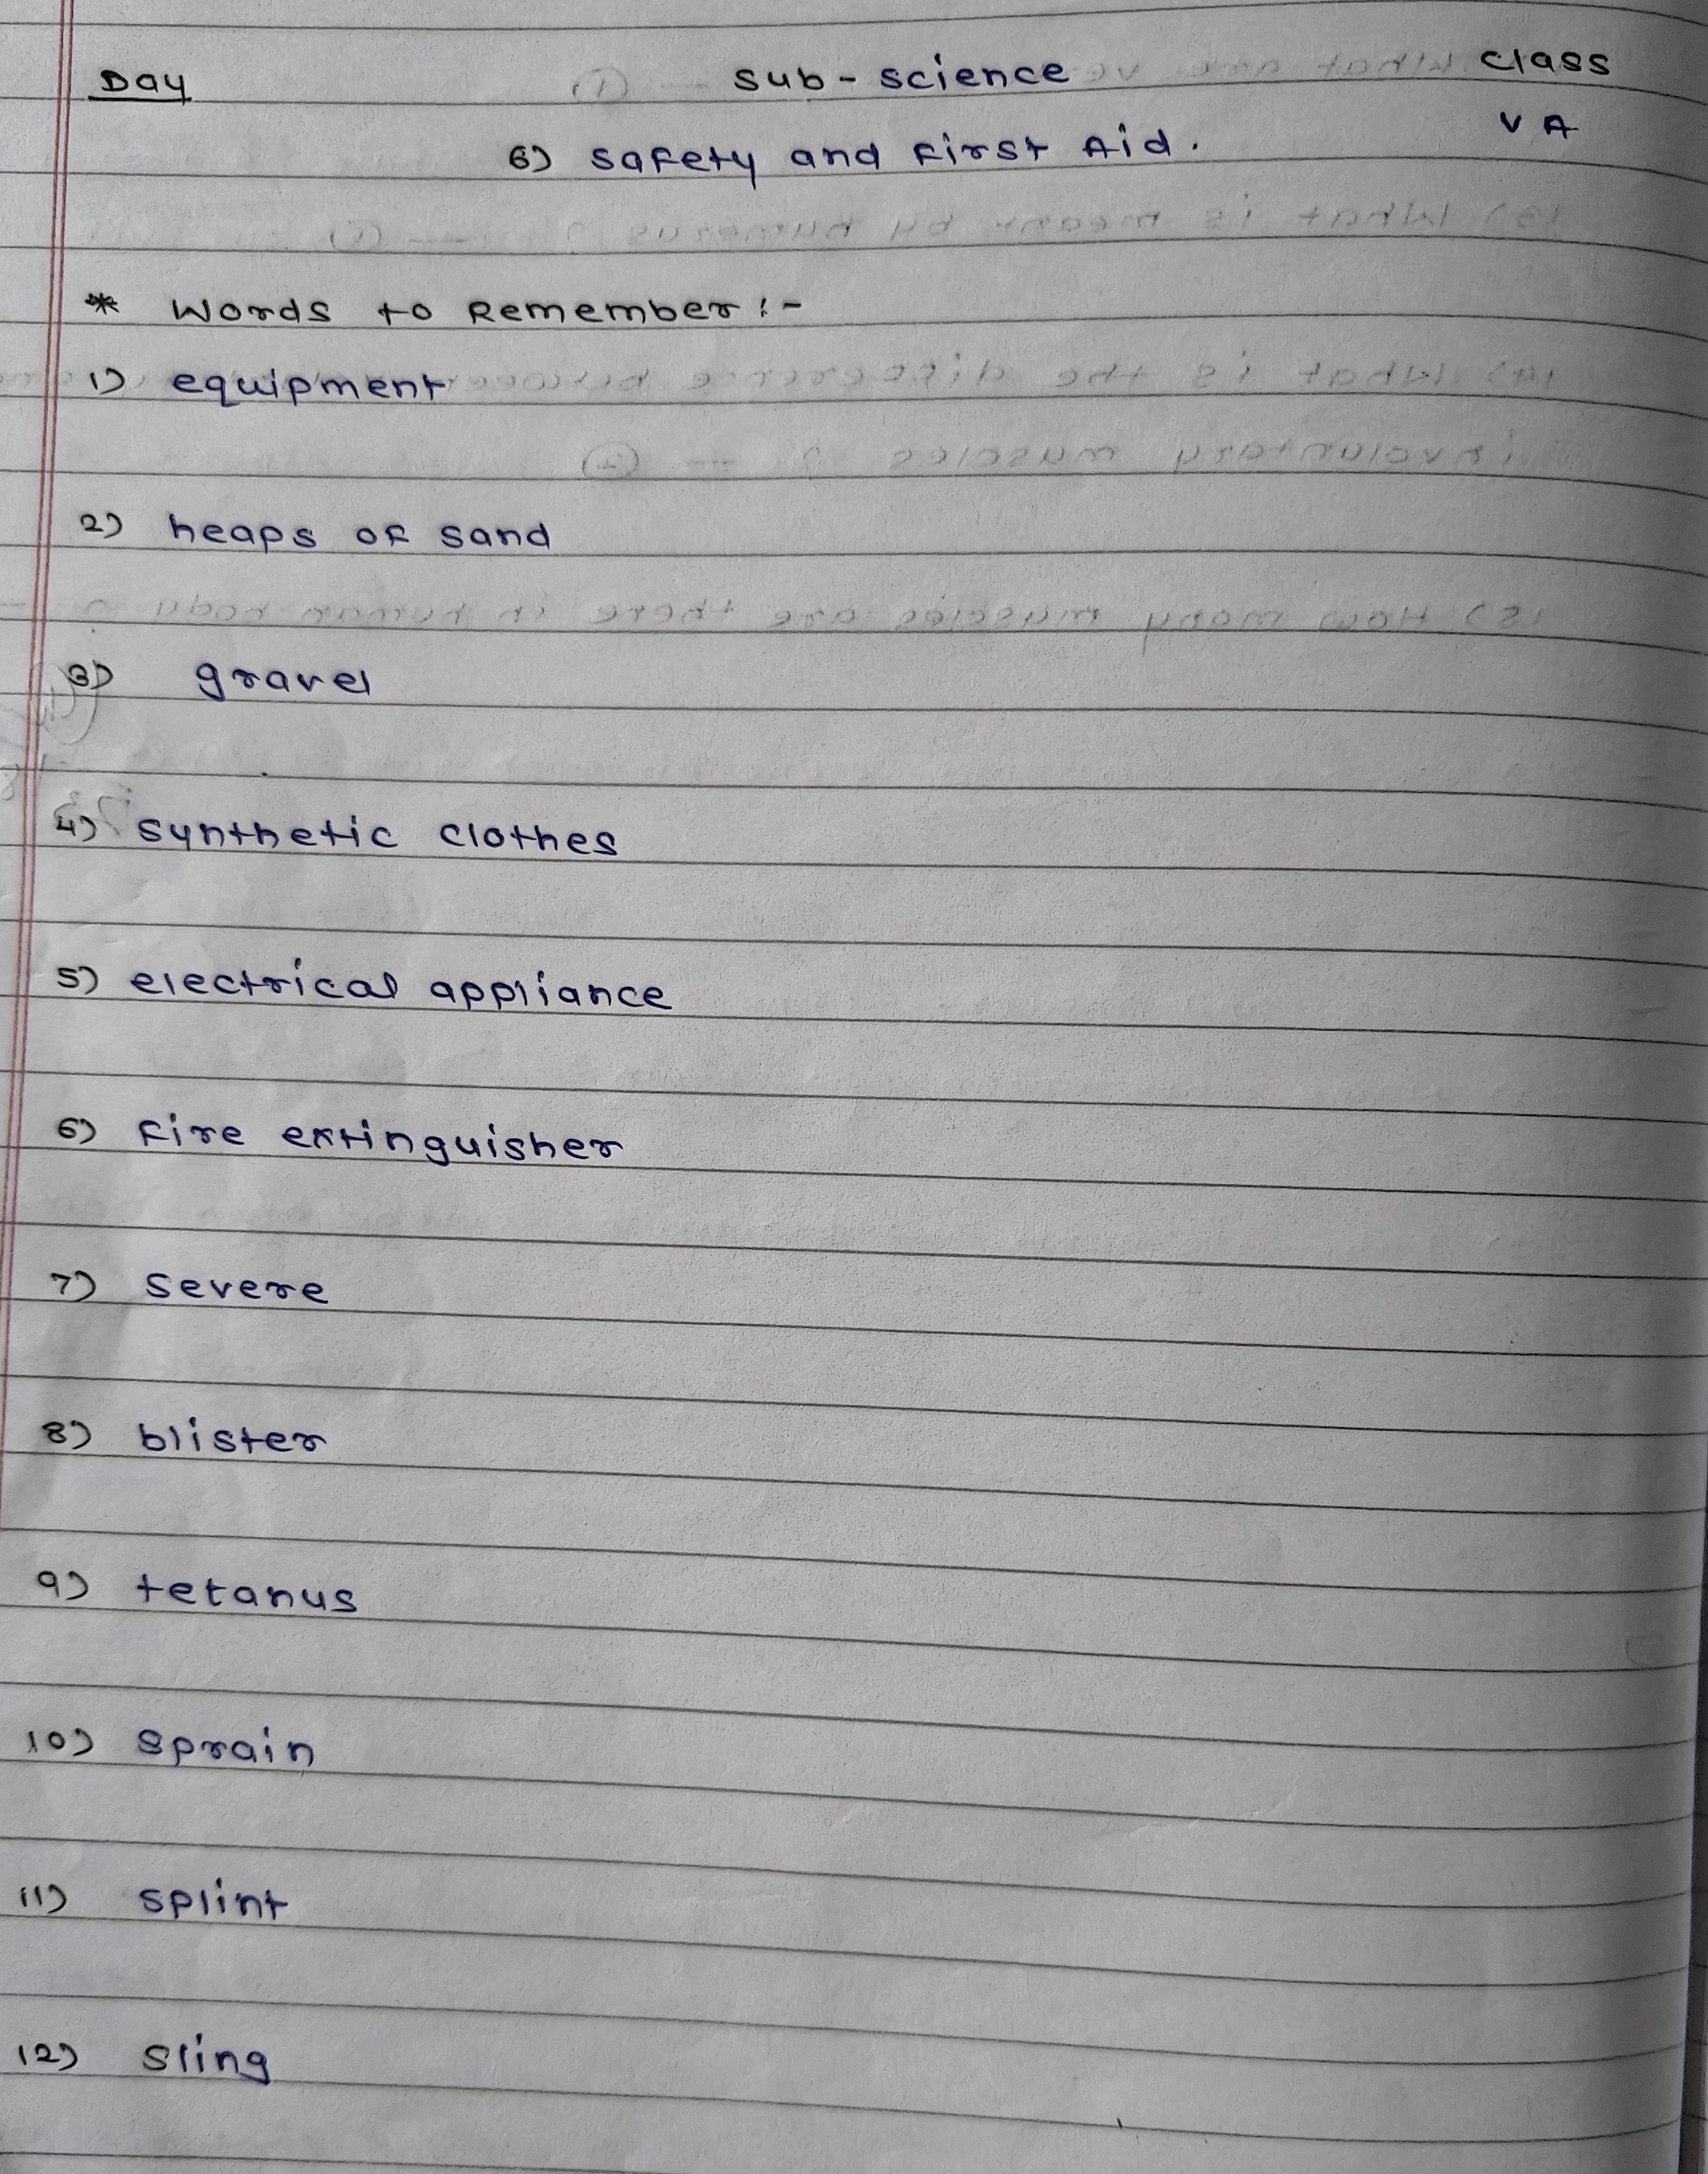 Day Sub - science class
V A
6) Safety and First Aid.
* Words to Remember :-
1) equipment
2) heaps of sand
3) gravel
4) synthetic clothes
5) electrical appliance
6) Fire extinguisher
7) severe
8) blister
9) tetanus
10) sprain
11) splint
12) sling